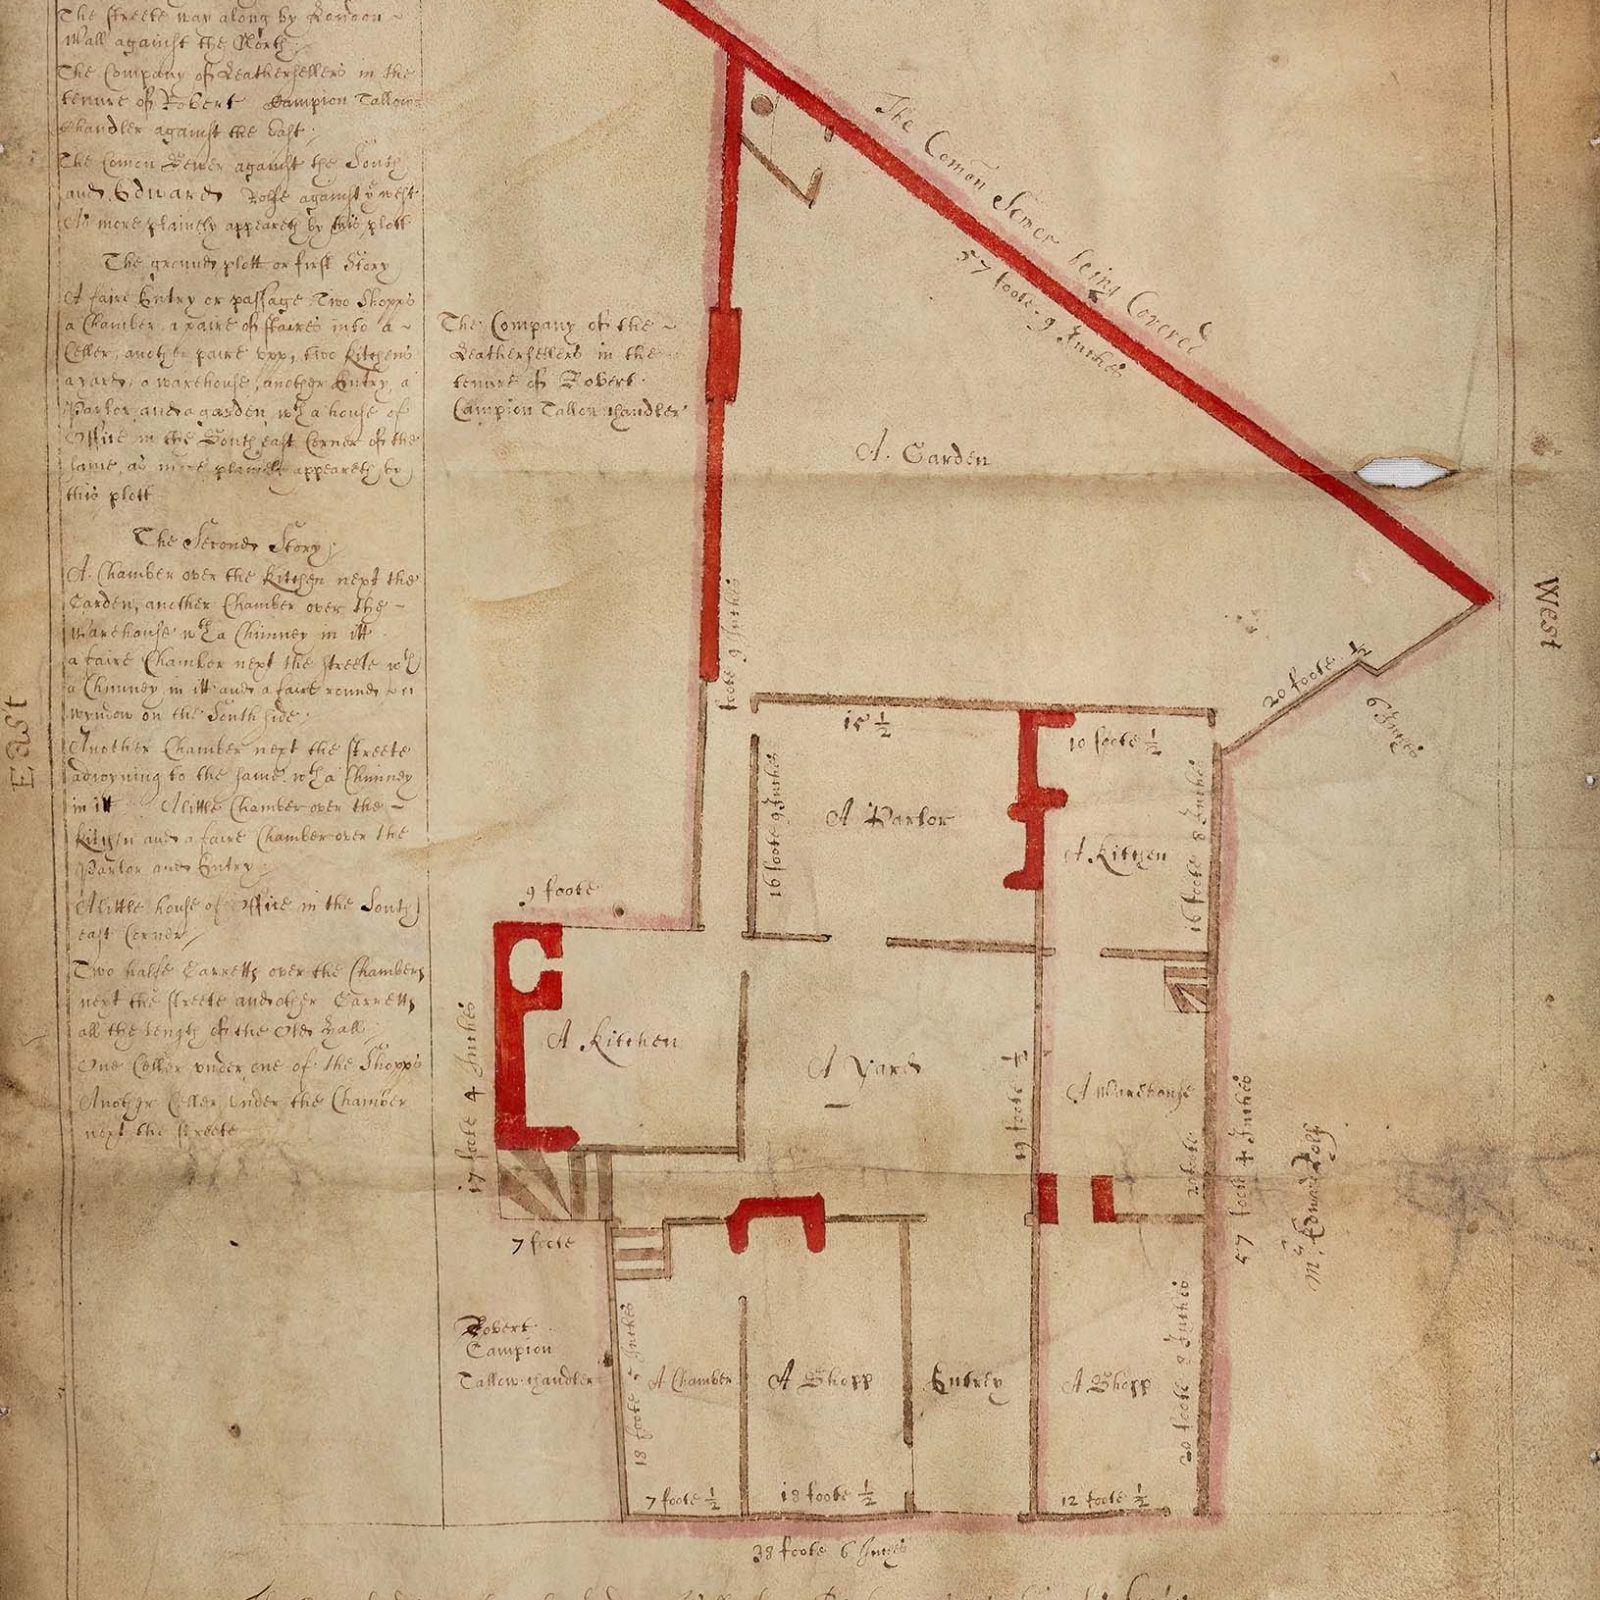 The streete way along by London
Wall against the North;
The Company of Leathersellers in the
tenure of Robert Campion Tallow
Chandler against the East;
The Comon Sewer against the South
and Edward Rolfe against ye west
As more plainely appeareth by this plott
The ground plott or first Story
A faire Entry or passage Two Shopps
a Chamber, a paire of staires into a
Celler, another paire upp, two Kitchens
a yard, a warehouse, another Entry, a
Parlor and a garden, wth a house of
Office in the South east Corner of the
same, as more plainely appeareth by
this plott
The Second Story;
A Chamber over the Kitchen next the
Garden, another Chamber over the
Warehouse wth a Chimney in itt
a faire Chamber next the streete wth
a Chimney in itt and a faire round
wyndow on the South side;
Another Chamber next the streete
adioyning to the same wth a Chimney
in itt A little Chamber over the
Kitchin and a faire Chamber over the
Parlor and Entry
A little house of Office in the South
east Corner
Two halfe Garretts over the Chambers
next the streete and other Garretts
all the length of the Old Hall;
One Celler under one of the Shopps
Another Celler under the Chamber
next the streete
East
West
The Company of the
Leathersellers in the
tenure of Robert
Campion Tallow chandler
The Comon Sewer being Covered
57 foote 9 Inches
A Garden
foote 9 Inches
20 foote 1/2
6 Inches
15 1/2
10 foote 1/2
16 foote 9 Inches
A Parlor
A Kitchen
16 foote 8 Inches
9 foote
17 foote 4 Inches
A Kitchen
A Yard
19 foote 1/2
A Warehouse
57 foote 4 Inches
Mr. Edward Rolf
7 foote
Robert
Campion
Tallow chandler
A Chamber
A Shopp
Entrey
A Shopp
20 foote 8 Inches
7 foote 1/2
18 foote 1/2
12 foote 1/2
38 foote 6 Inches